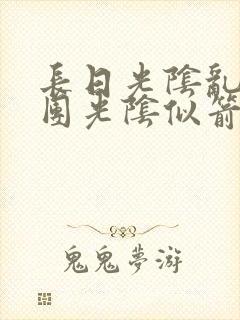 長日光陰亂
團光陰似箭
鬼鬼夢游